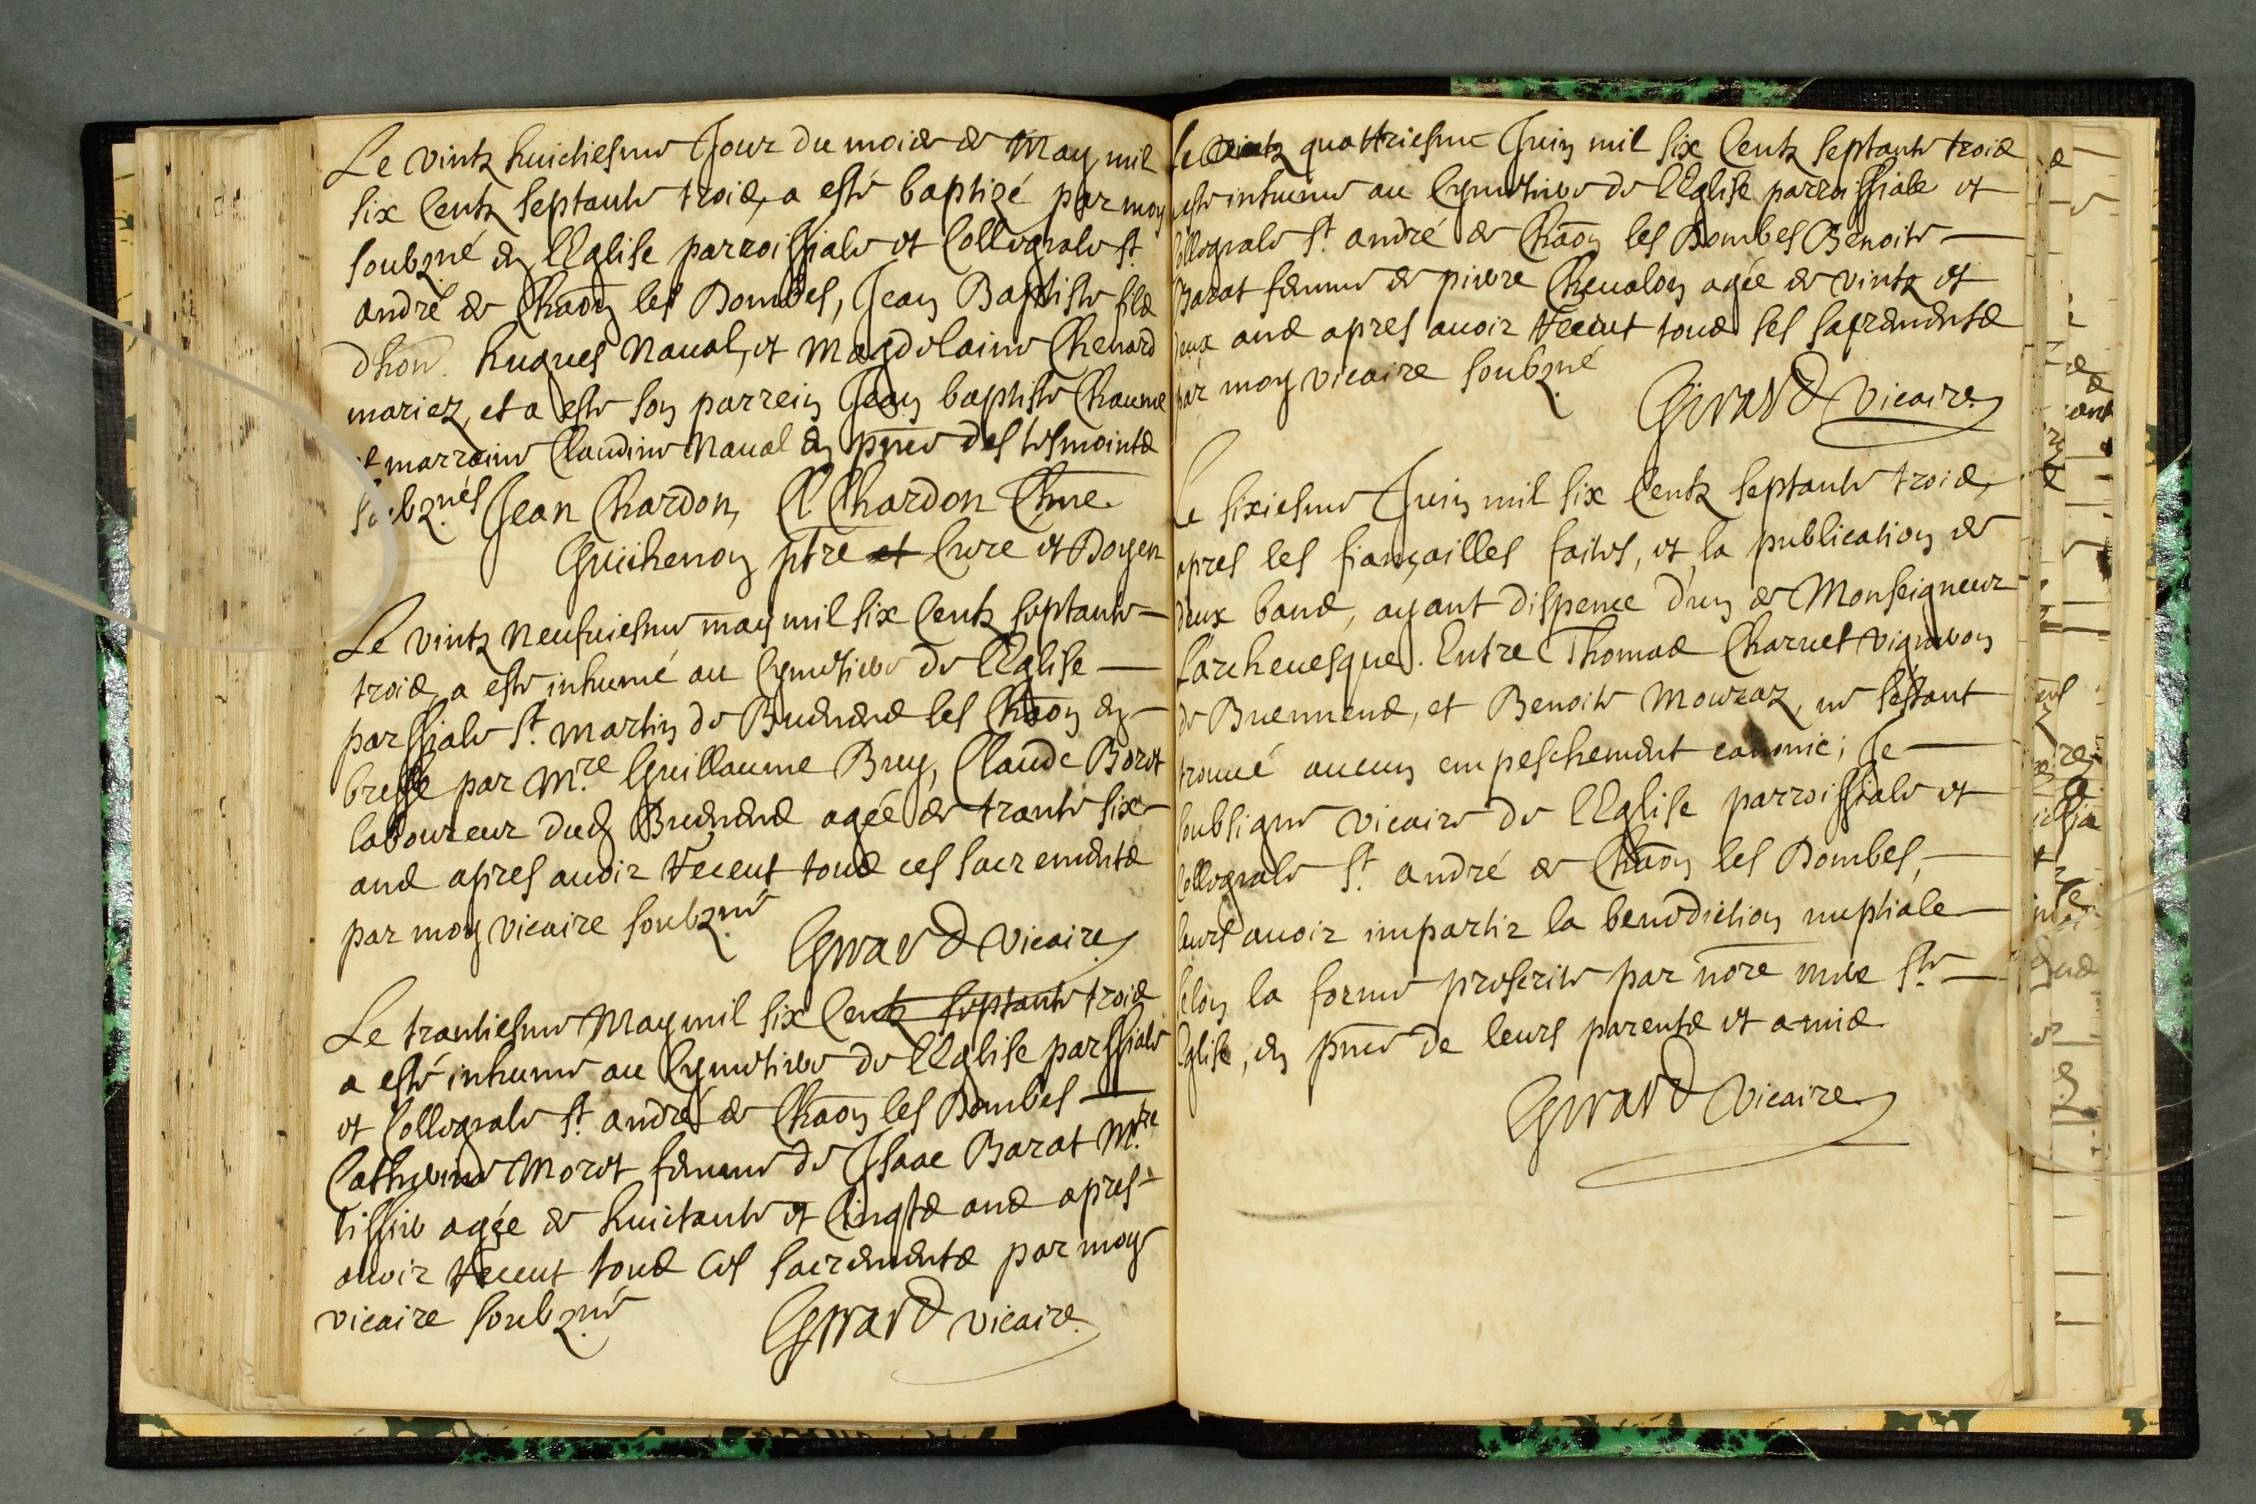 Le vintz huictiesme Jour du mois de May mil
six Centz septante trois, a esté baptizé par moy
soubzné en l'Eglise parroissiale et Collegiale st
andré de Chaōn les Dombes, Jean Baptiste fils
dhon. hugues Naual, et Magdelaine Chenard
mariez, et a este son parrein Jean baptiste Chaume
et marraine Claudine Naual en pnce des tesmointz
soubznés Jean Chardon, C Chardon Chne
Guichenon ptre et Cure et Doyen
Le vintz neufuiesme may mil six Centz septante
trois, a este inhumé au Cymetiere de l'Eglise
parssiale st. Martin de Buenens les Chaōn en
bresse par Mre Guillaume Bruy, Claude Borot
laboureur dud Buenens agée de trante six
ans apres auoir receut tous ces sacrements
par moy vicaire soubzné
Girard vicaire
Le trantiesme May mil six Centz septante trois
a esté inhume au Cymetiere de l'Eglise parssiale
et Collegiale st. andré de Chaōn les Dombes
Catherine Morot femme de Isaac Barat Mre
tissier agée de huictante et Cinqts ans apres
auoir receut tous ces sacrements par moy
vicaire soubzné
Girard vicaire
Le vintz quattriesme Juin mil six Centz septante trois
este inhume au Cymetiere de l'Eglise parroissiale et
Collegiale st. andré de Chaōn les Dombes Benoite
Barat femme de pierre Cheualon agée de vintz et
deux ans apres auoir receut tous ses sacrements
par moy vicaire soubzné
Girard vicaire
Le sixiesme Juin mil six Centz septante trois,
apres les fiançailles faites, et la publication de
deux bans, ayant dispence d'un de Monseigneur
l'archeuesque. Entre Thomas Charuet vigneron
de Buennens, et Benoite Mowraz, ne s'estant
trouué aucun empeschement canonic; Je
soubsigne vicaire de l'Eglise parroissiale et
Collegiale st. andré de Chaōn les Dombes,
leurs auoir impartir la benediction nuptiale
selon la forme prescrite par nōre mere ste
Eglise, en pnce de leurs parents et amis
Girard vicaire